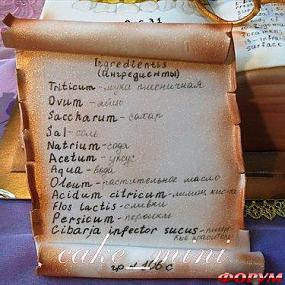 Ingredientis
(ингредиенты)
Triticum - мука пшеничная
Ovum - яйцо
Saccharum - сахар
Sal - соль
Natrium - сода
Acetum - уксус
Aqua - вода
Oleum - растительное масло
Acidum citricum - лимон. кислота
Flos lactis - сливки
Persicum - персики
Cibaria infector sucus - пищевые красители
cake_mini
ФОРУМ